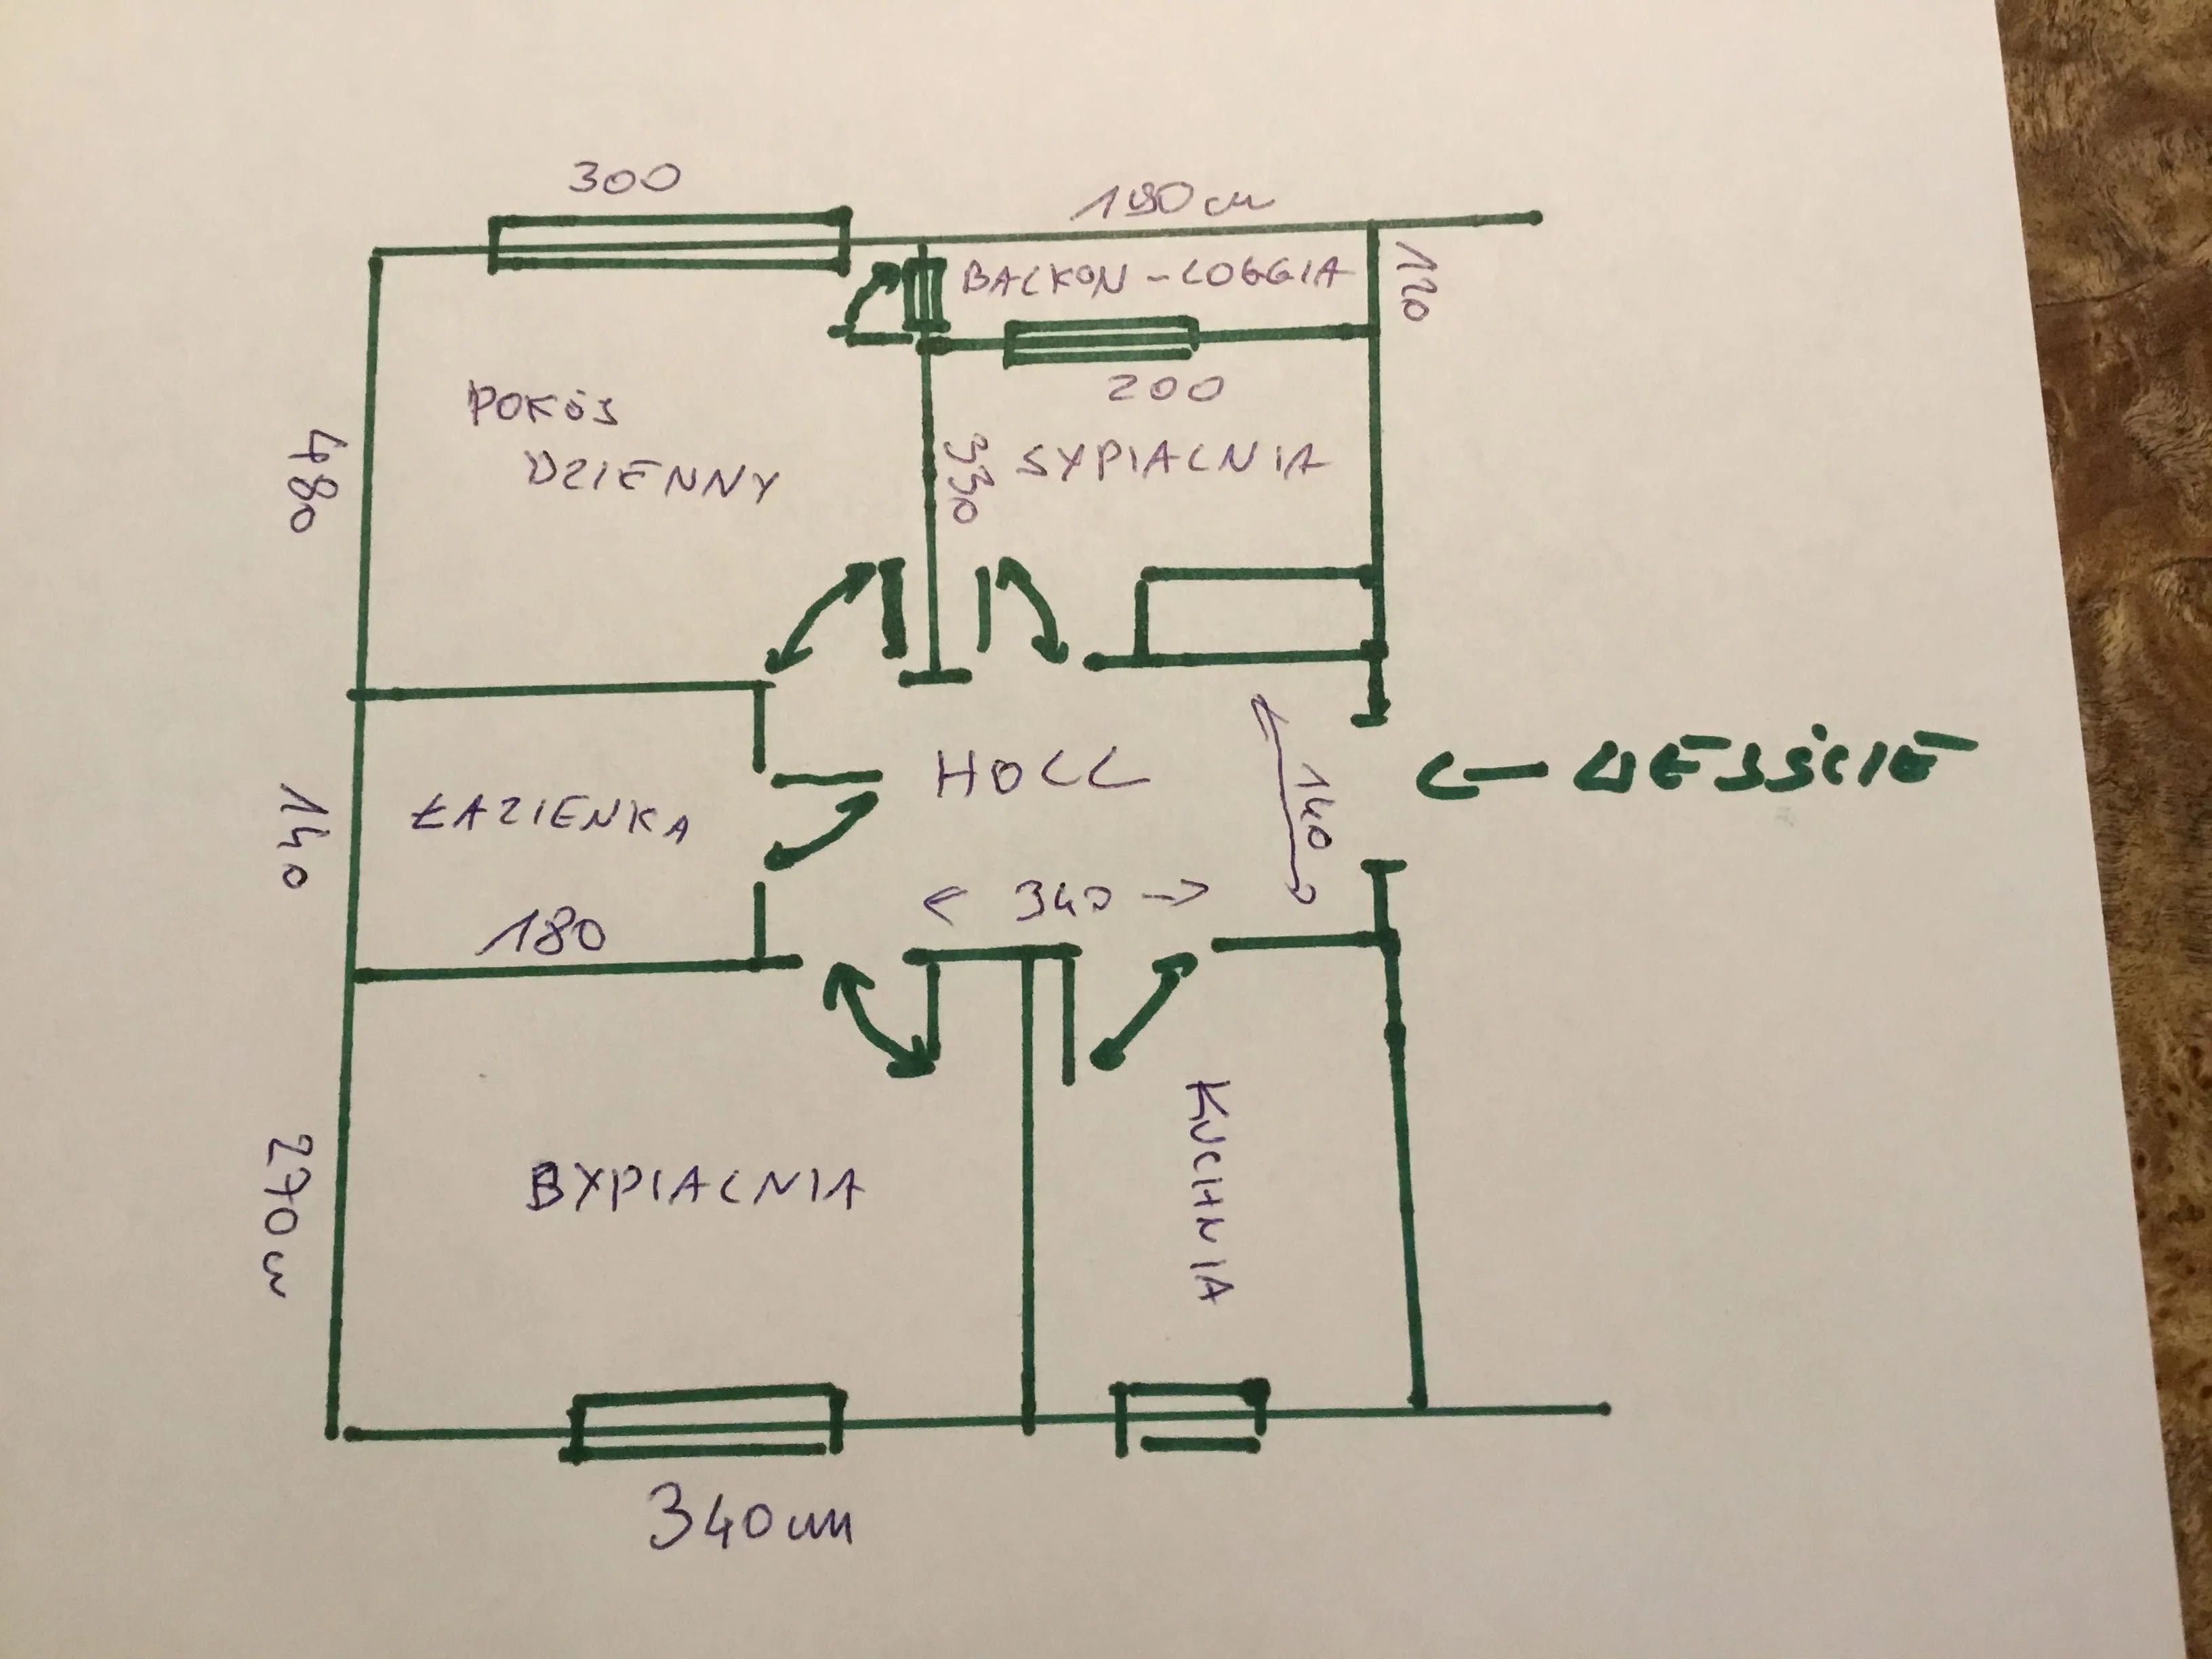 300
190 cm
BALKON - LOGGIA
120
200
POKÓJ
DZIENNY
480
330
SYPIALNIA
HOLL
140
← WEJŚCIE
ŁAZIENKA
140
180
← 340 →
SYPIALNIA
KUCHNIA
270 cm
340 cm